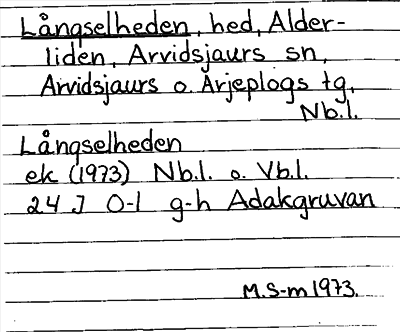 Långselheden, hed, Alder-
liden, Arvidsjaurs sn,
Arvidsjaurs o. Arjeplogs tg,
Nb.l.
Långselheden
ek (1973) Nb.l. o. Vb.l.
24 J 0-1 g-h Adakgruvan
M.S-m 1973.